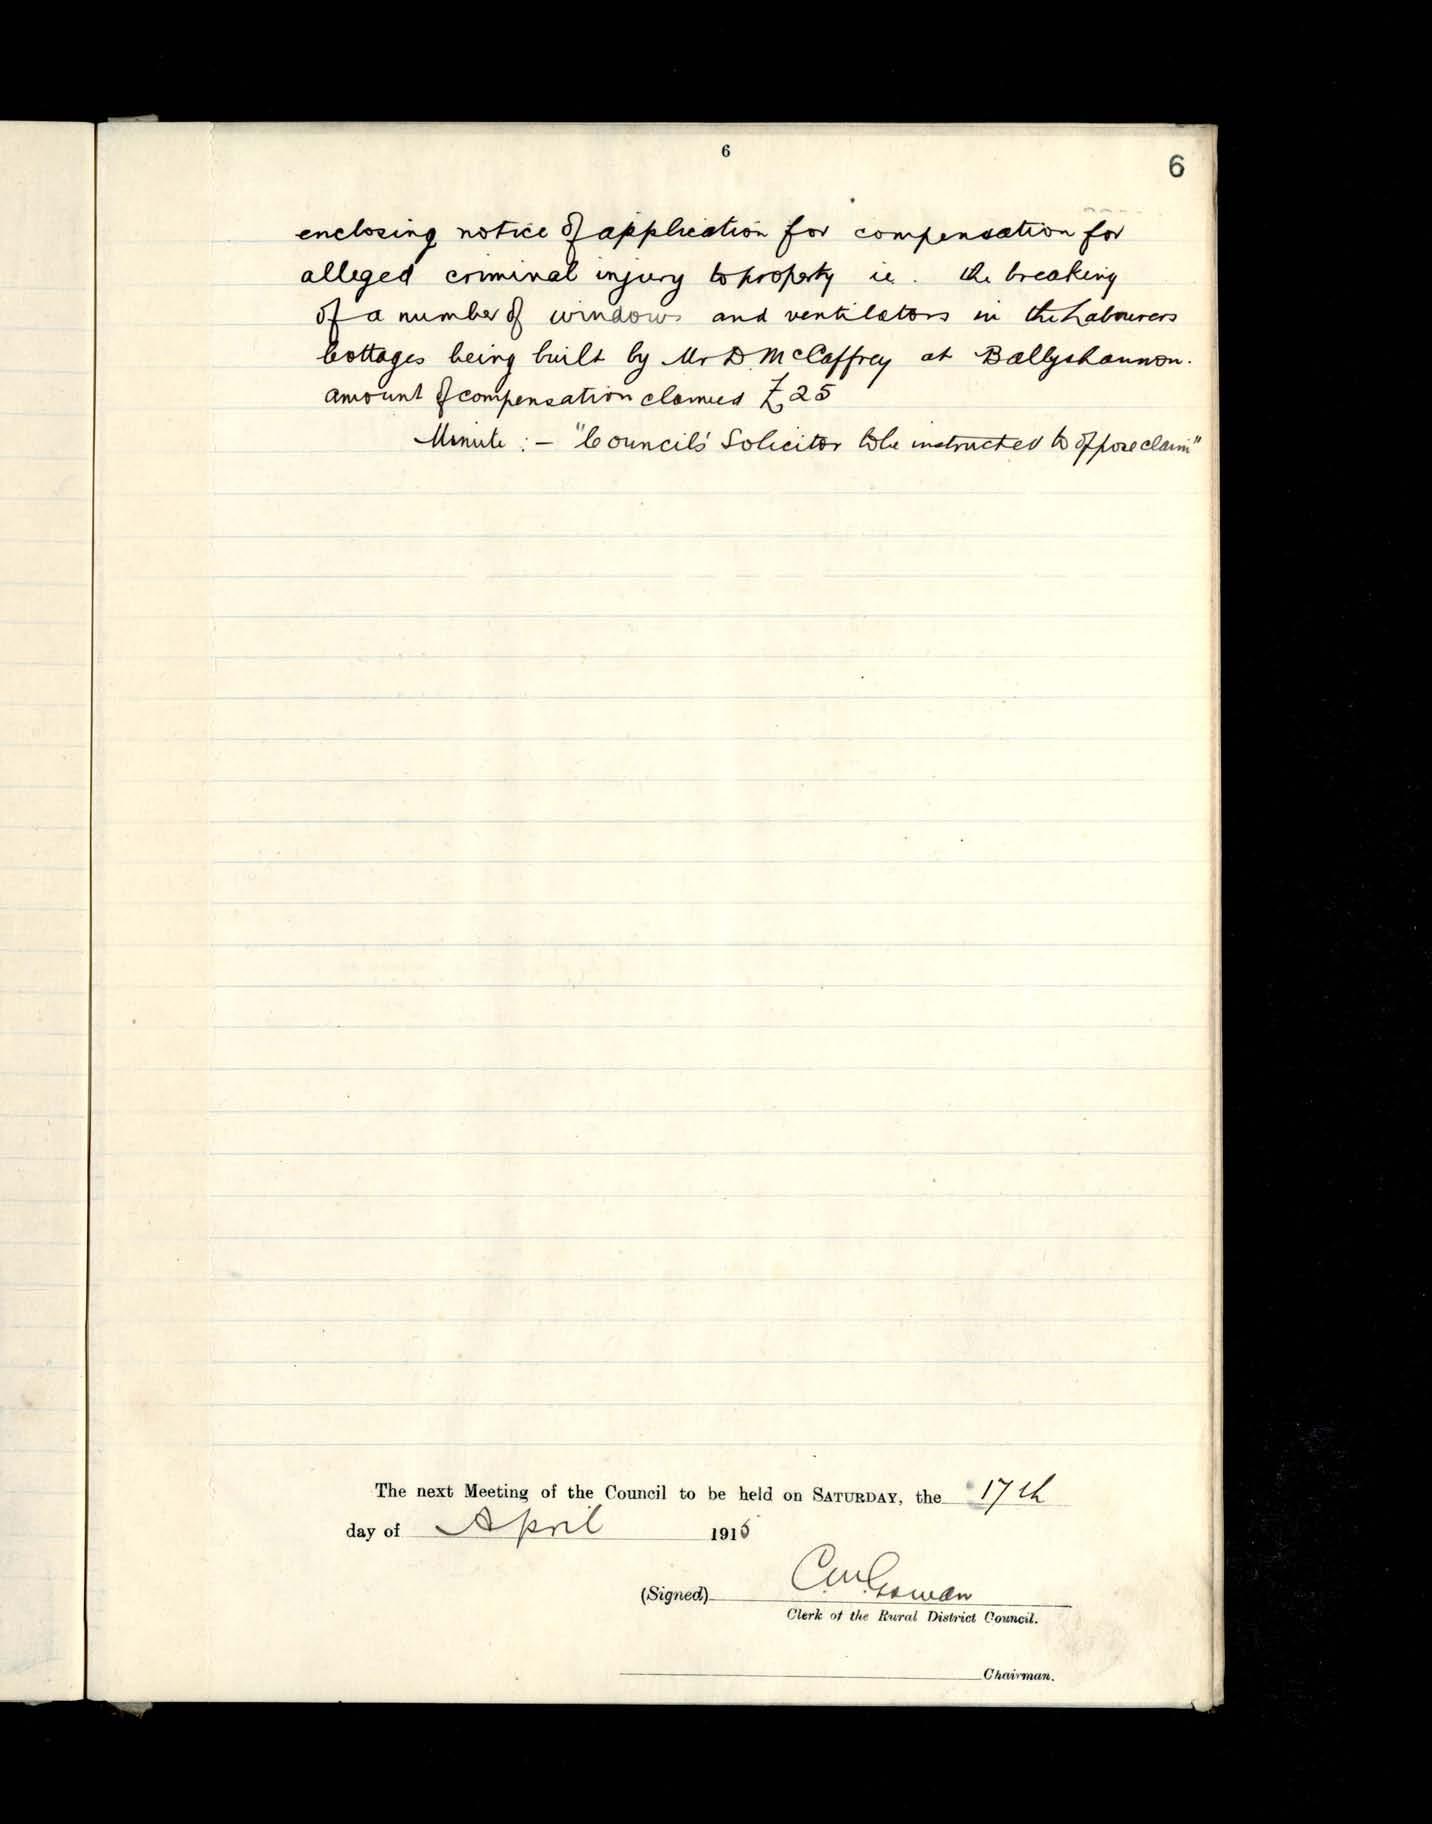 6
6
enclosing notice of application for compensation for
alleged criminal injury to property ie. the breaking
of a number of windows and ventilators in the Labourers
Cottages being built by Mr D. McCaffrey at Ballyshannon.
amount of compensation claimed £25
Minute :- "Councils' Solicitor to be instructed to oppose claim"
The next Meeting of the Council to be held on SATURDAY, the 17th
day of April 1915
(Signed)
Clerk of the Rural District Council.
Chairman.